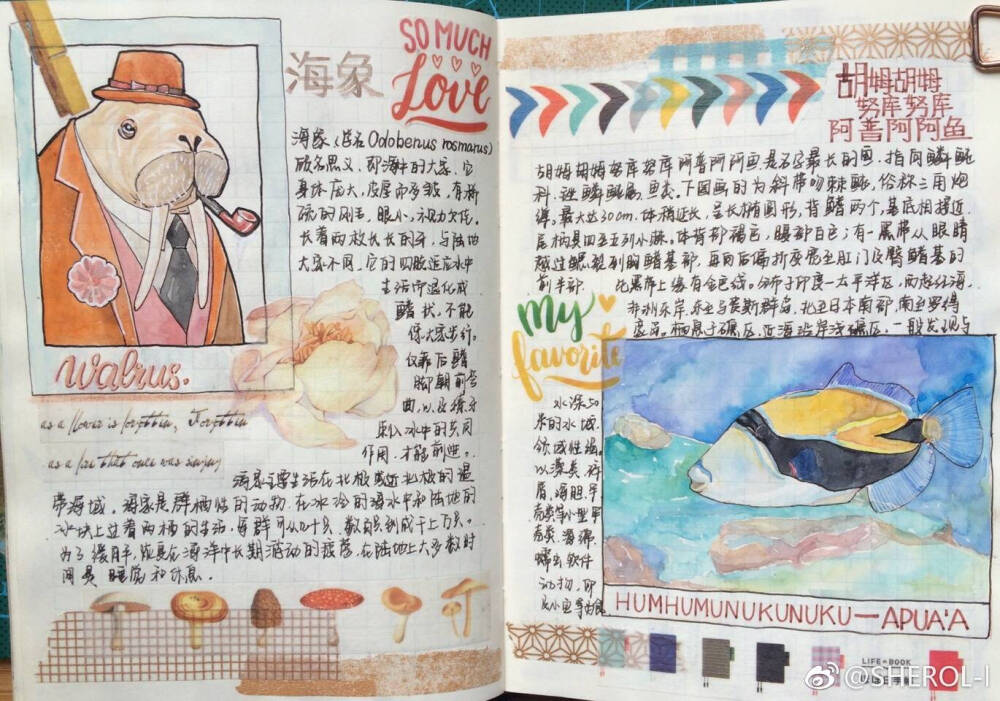 SO MUCH
Love
海象
海象（学名Odobenus rosmarus）
顾名思义，即海中的大象，它
身体庞大，皮厚而多皱，有稀
疏的刚毛，眼小，视力欠佳。
长着两枚长长的牙，与陆地
大象不同，它的四肢适应水中
生活而退化成
鳍状，不能
像大象步行，
仅靠后鳍
脚朝前弯
曲，以及獠牙
刺入冰中的共同
作用，才能前进。
Walrus.
as a flower is forgotten, Forgotten
as a fire that once was singing
海象主要生活在北极或近北极的温
带海域。海象是群栖性的动物，在冰冷的海水中和陆地的
冰块上过着两栖的生活，每群可从几十只、数百只到成千上万只。
时
间是睡觉和休息。
胡姆胡姆
努库努库
阿普阿阿鱼
胡姆胡姆努库努库阿普阿阿鱼是名字最长的鱼，指同鳞鲀
科、锉鳞鲀属、鱼类。下图画的为斜带吻棘鲀，俗称三角炮
弹。最大达30cm，体稍延长，呈长椭圆形，背鳍两个，基底相接近，
尾柄具四至五列小棘。体背部褐色，腹部白色；有一黑带从眼睛
越过鳃裂到胸鳍基部，再向后偏折变宽至肛门及臀鳍基的
前半部。 此黑带上缘有金色线。分布于印度—太平洋区，西起红海、
非洲东岸，东至马贵斯群岛，北至日本南部，南至罗得
豪岛。栖息于礁区，近海沿岸浅礁区，一般发现与
My
favorite
水深50
米的水域，
领域性强。
以藻类、碎
屑、海胆、甲
壳类等小型甲
壳类、
蠕虫、软体
动物，
及小鱼等为食
HUMHUMUNUKUNUKU—APUA'A
LIFE BOOK
@SHEROL-I